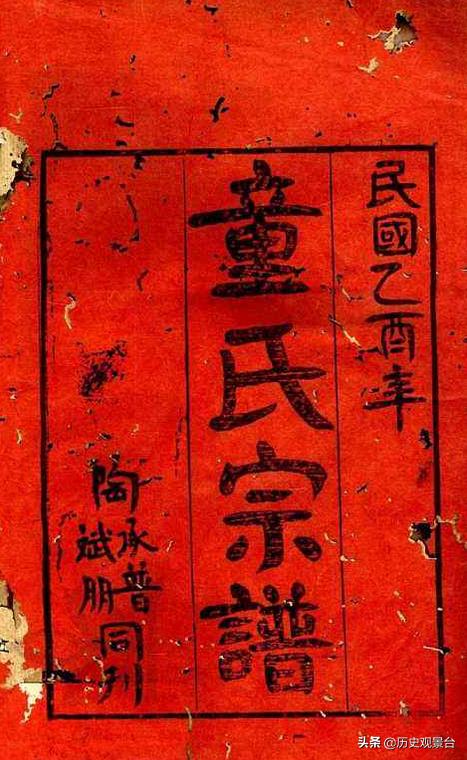 民國乙酉年
童氏宗譜
陶承普
斌朋
同刊
头条 @历史观景台